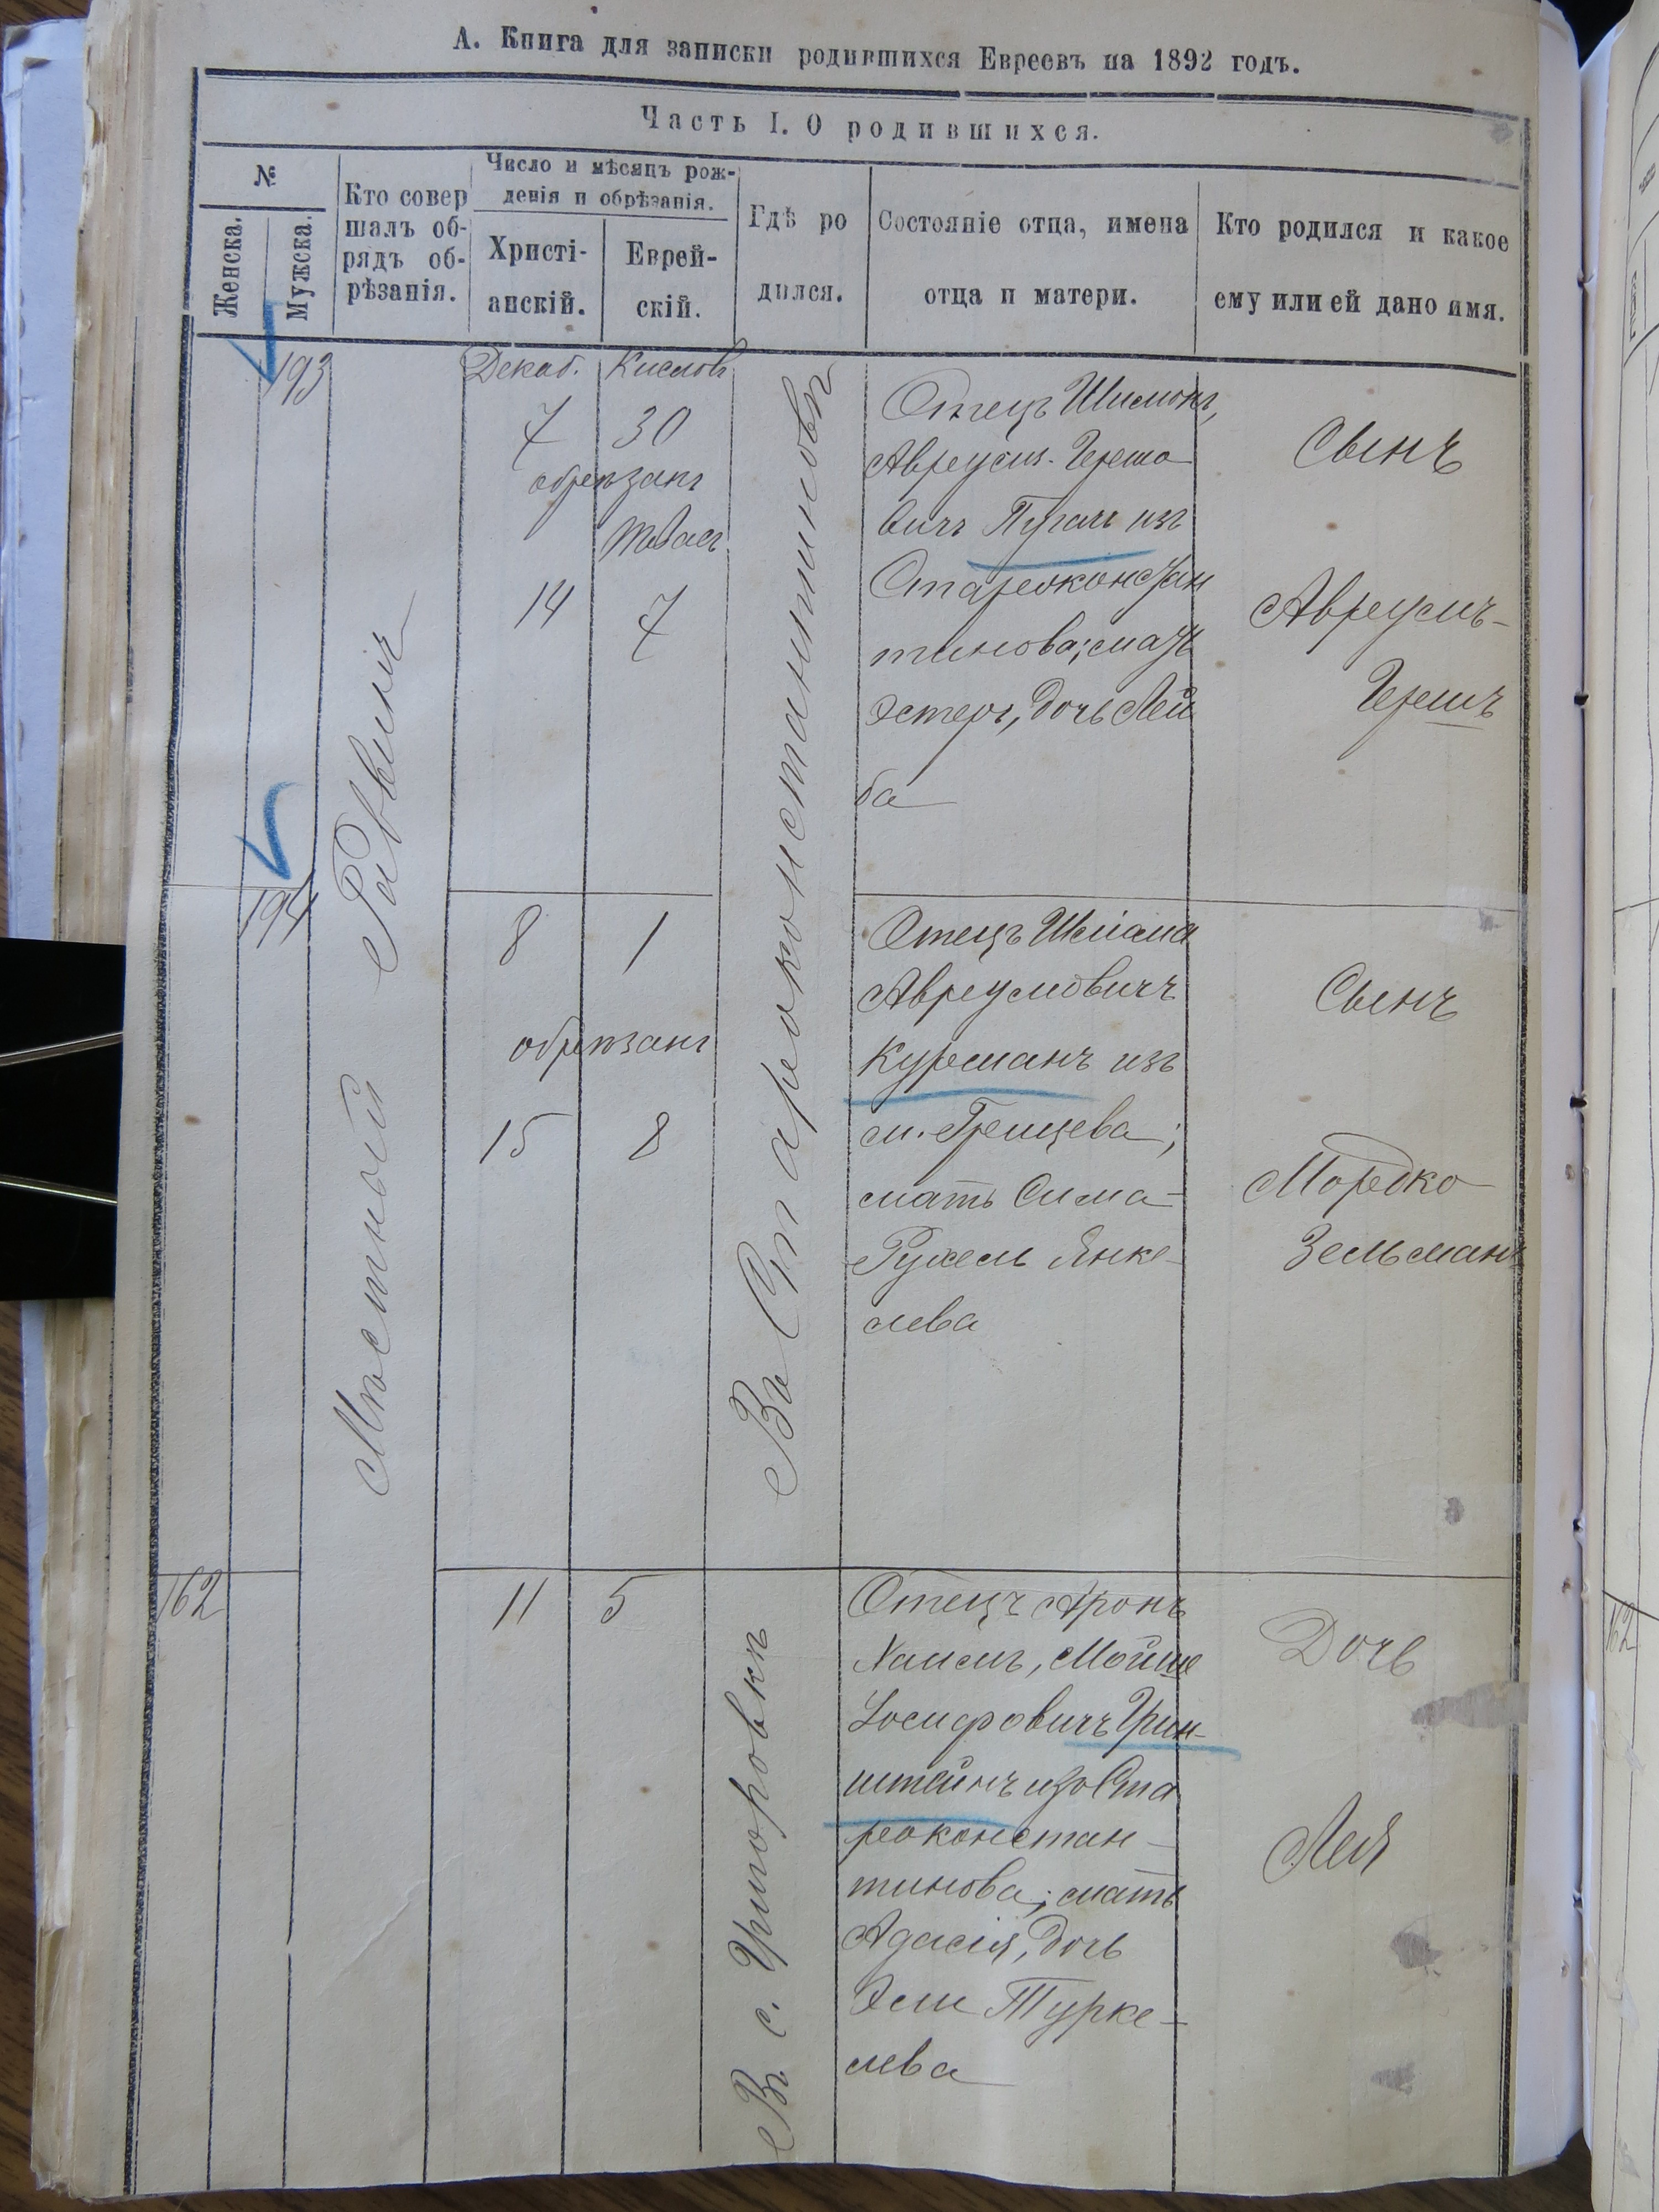 А. Книга для записки родившихся Евреевъ на 1892 годъ.
Часть I. О родившихся.
№
Женска.
Мужска.
Кто совер
шалъ об-
рядъ об-
рѣзанія.
Число и мѣсяцъ рож-
денія и обрѣзанія.
Христі-
анскій.
Еврей-
скій.
Гдѣ ро
дился.
Состояніе отца, имена
отца и матери.
Кто родился и какое
ему или ей дано имя.
193
Мѣстной Раввинъ
Декаб.
Кислов
7
30
обрѣзанъ
14
7
Въ Староконстантиновѣ
Отецъ Шимонъ,
Авреумъ-Герша
вичъ Пугачъ изъ
Староконстан
тинова; мать
Эстеръ, дочь Лей
ба
Сынъ
Авреумъ-
Гершъ
194
8
1
обрѣзанъ
15
8
Отецъ
Авреумовичъ
Курманъ изъ
м. Грицева;
мать Сима-
Рухель Янке-
лева
Сынъ
Мордко
Зельманъ
162
11
5
Въ с. Григоровкѣ
Отецъ Аронъ
Хаимъ, Мойше
Іосифовичъ Грин-
штейнъ изъ Ста
роконстан-
тинова; мать
Адасія, дочь
Эли Турке-
лева
Дочь
Лея